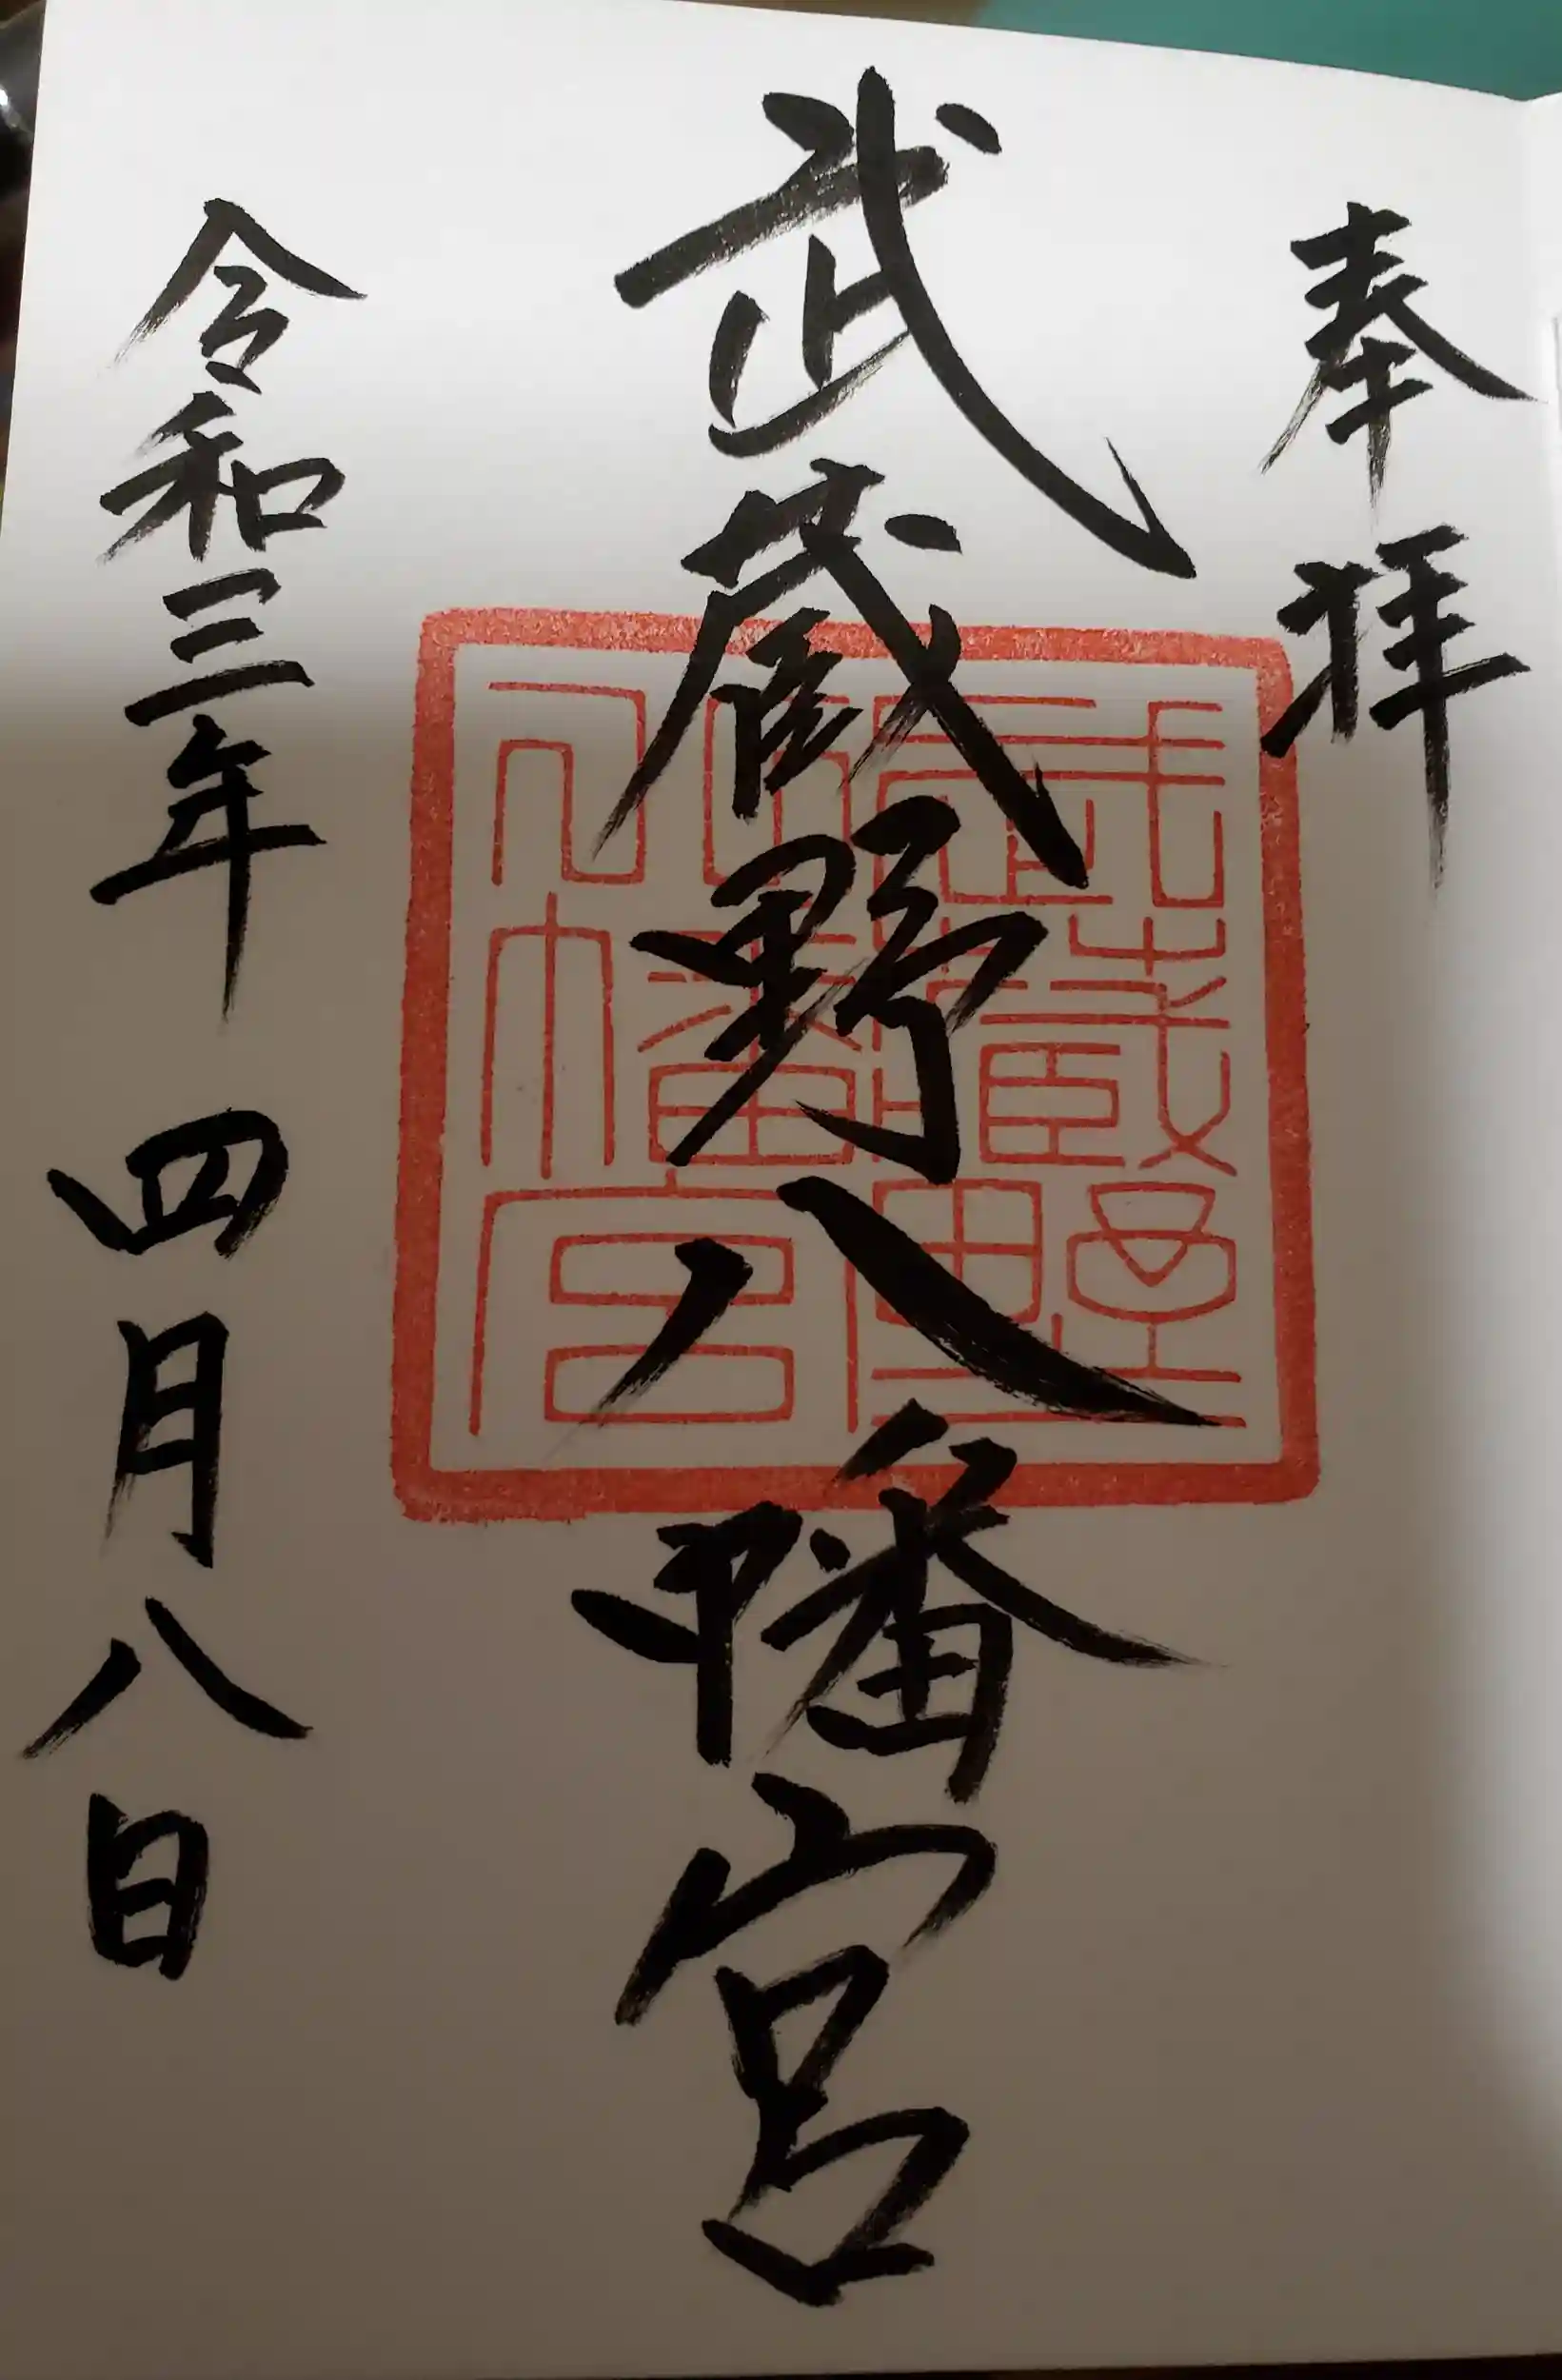 奉拝
武蔵野八幡宮
武蔵野
八幡宮
令和三年 四月八日